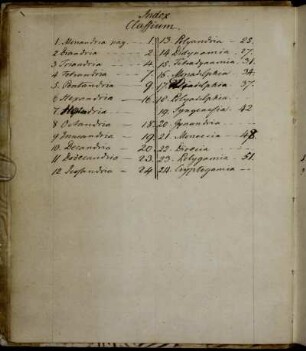 Index
Classium.
1. Monandria pag. 1.
2 Diandria 2.
3. Triandria 4.
4. Tetrandria 7.
5. Pentandria 9
6 Hexandria 16.
7
8 Octandria 18
9. 19
10. Decandria 20.
11 Dodecandria 23.
12. Icosandria 24
13. Polyandria 25.
14. Didynamia 27.
15. Tetradynamia 31.
16. Monadelphia 34.
17. 37.
18. Polyadelphia.
19. Syngenesia. 42
20. Gynandria
21. Monoecia 48.
22. Dioecia
23. Polygamia 51.
24. Cryptogamia